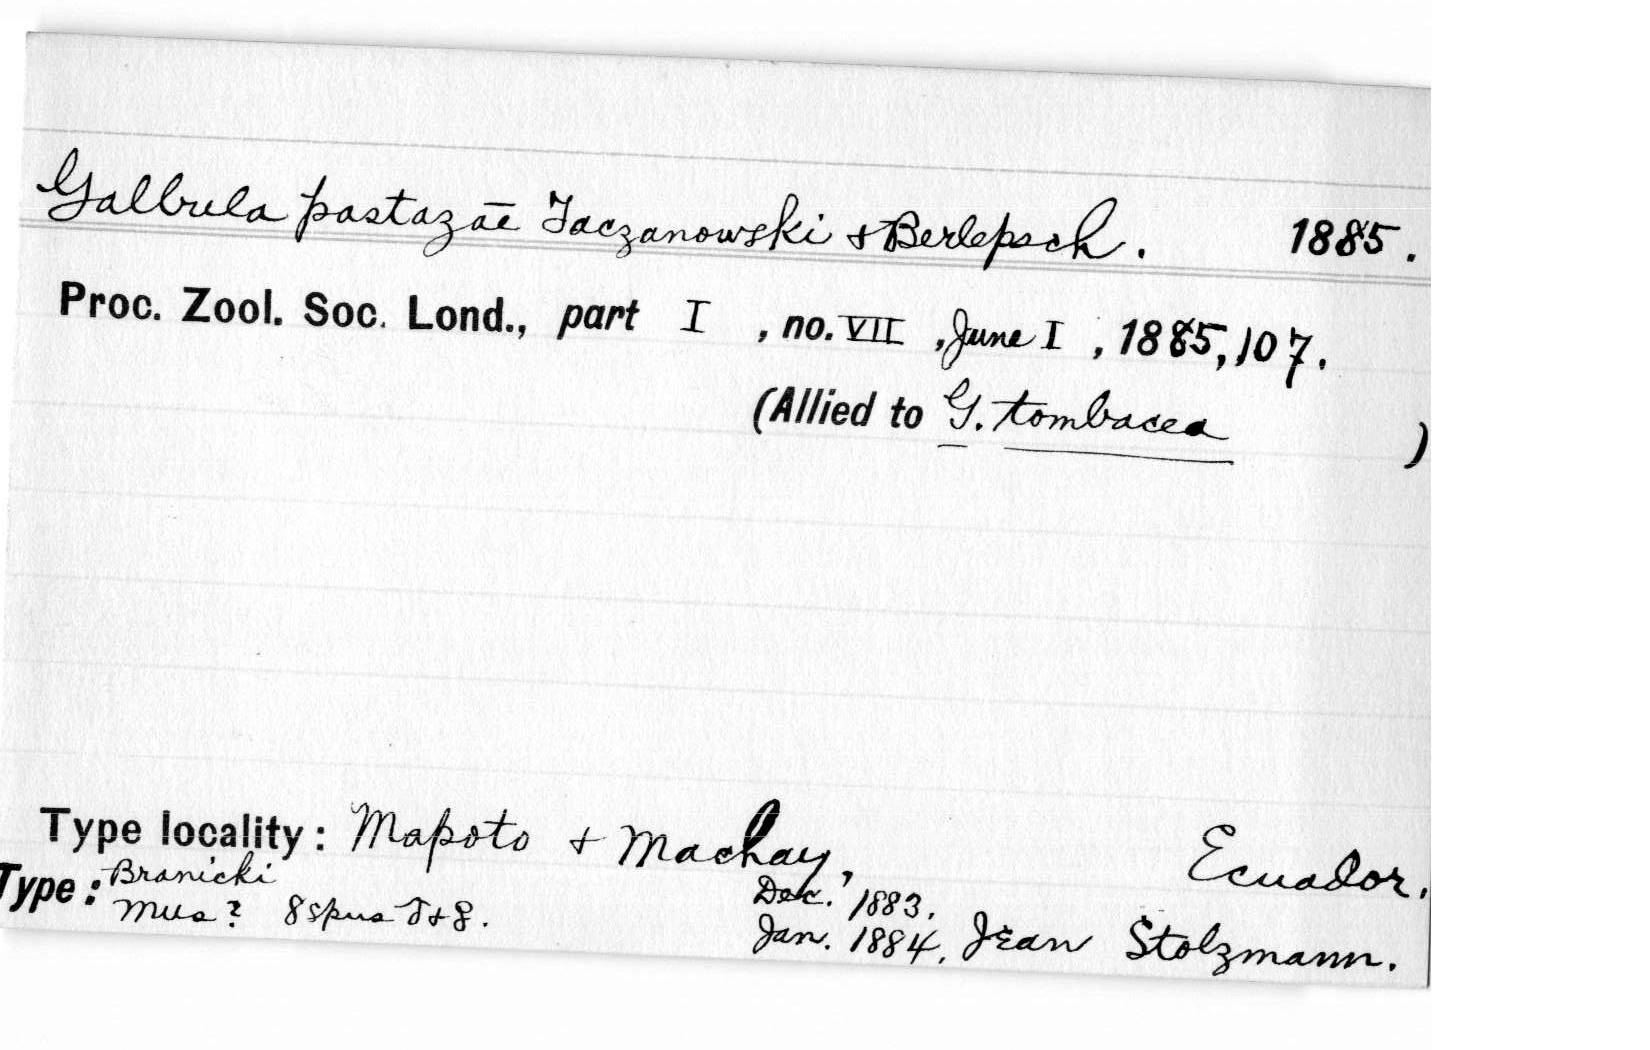 Galbula pastazae Taczanowski & Berlepsch. 1885.
Proc. Zool. Soc. Lond., part I, no. VII, June I, 1885, 107.
(Allied to G. tombacea )
Type locality: Mapoto + Machay, Ecuador.
Type: Branicki Dec. 1883.
Mus? 8 spns ♂ + ♀. Jan. 1884, Jean Stolzmann.